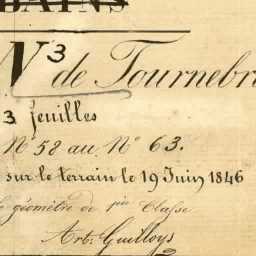 BAINS
N 3 de Tournebr
3 feuilles
N° 58 au N° 63.
sur le terrain le 19 Juin 1846
géomètre de 1re Classe
Art. Guilloys